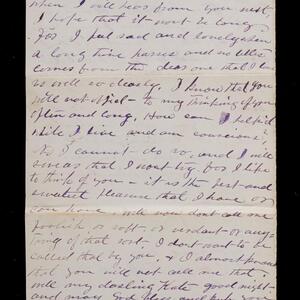 when I will hear from you next,
I hope that it wont be long
for I feel sad and lonely when
a long time passes and no letter
comes from the dear one that I love
so well so dearly. I know that you
will not object to my thinking of you
often and long. How can I help it
while I live and am conscious,
No I cannot do so, and I will
swear that I wont try for I like
to think of you - it is the best and
sweetest pleasure that I have or
can have. will now dont call me
foolish or soft, or verdant or any-
thing of that sort. I dont want to be
called that by you, & I almost
that you will not call me that.
will my darling Kate good night
and may God bless and keep you